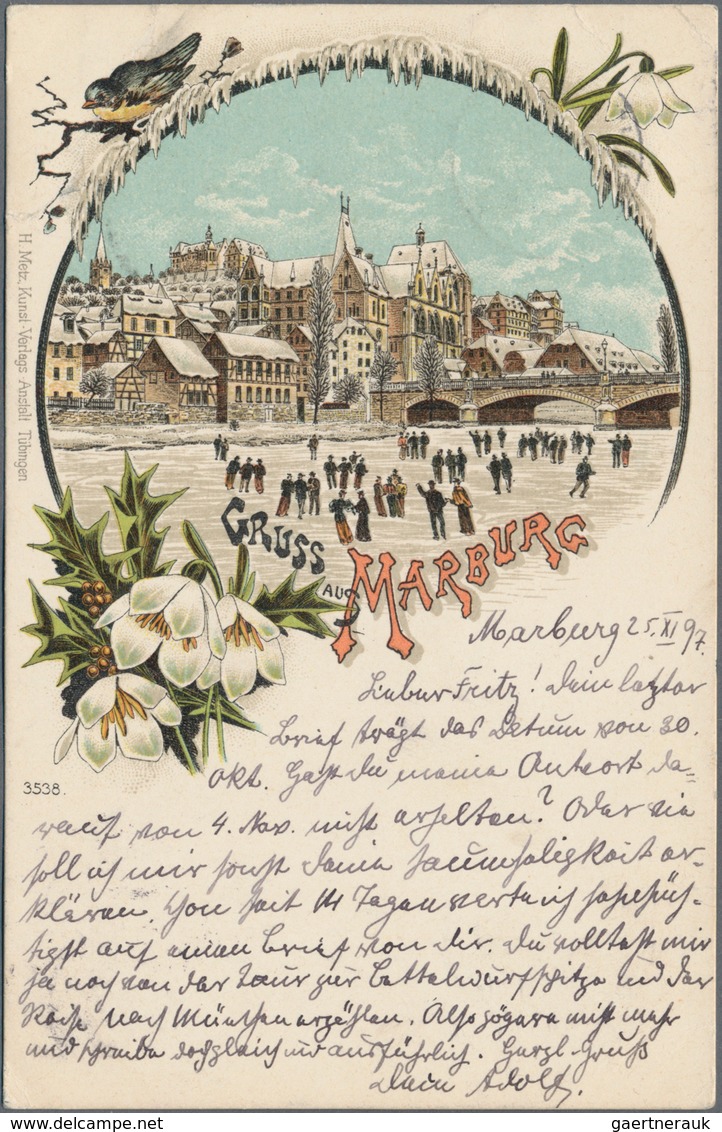 H. Metz, Kunst-Verlags Anstalt Tübingen
GRUSS
AUS
MARBURG
Marburg 25. XI 97.
Lieber Fritz! Dein letzter
Brief trägt das Datum von 30.
Okt. Hast du meine Antwort da=
rauf von 4. Nov. nicht erhalten? Oder wie
soll ich mir sonst deine Saumseligkeit er-
klären. Schon seit 14 Tagen warte ich sehnsüch-
tigst auf einen Brief von dir. Du wolltest mir
ja noch von der Tour zur Bettelwurfspitze und der
Reise nach München erzählen. Also zögere nicht mehr
und schreibe doch gleich und ausführlich. Herzl. Gruß
Dein Adolf.
3538.
gaertnerauk